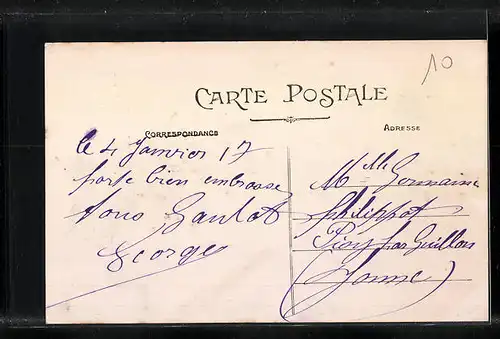 10
CARTE POSTALE
CORRESPONDANCE
ADRESSE
le 4 Janvier 17
porte bien embrasse
vous
George
Mlle Germaine
Philippot
par Guillon
(Yonne)